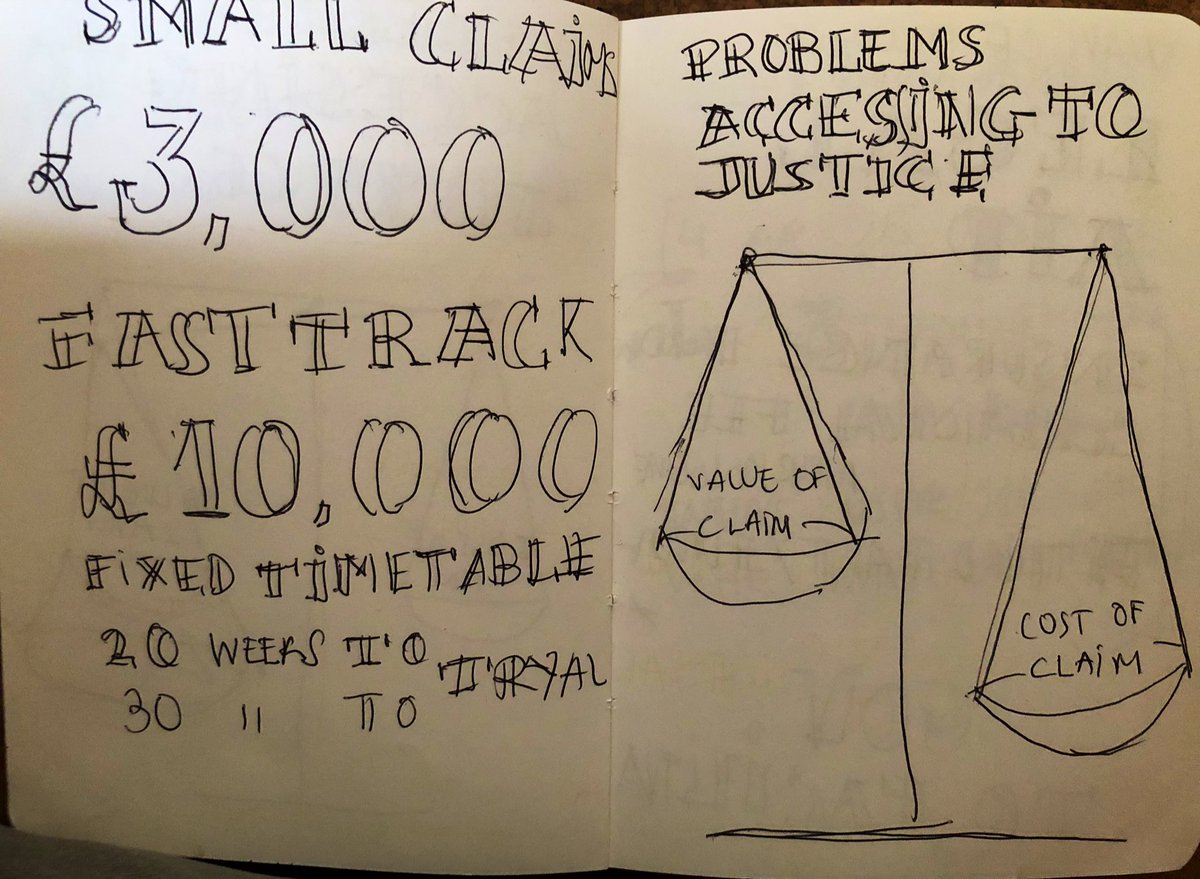 SMALL CLAims
£3,000
FAST TRACK
£10,000
FiXED TiMETABLE
20 WEEKS TO TRYAL
30 " TO
PROBLEMS
ACCESiNG TO
JUSTICE
VALUE OF
CLAIM
COST OF
CLAiM